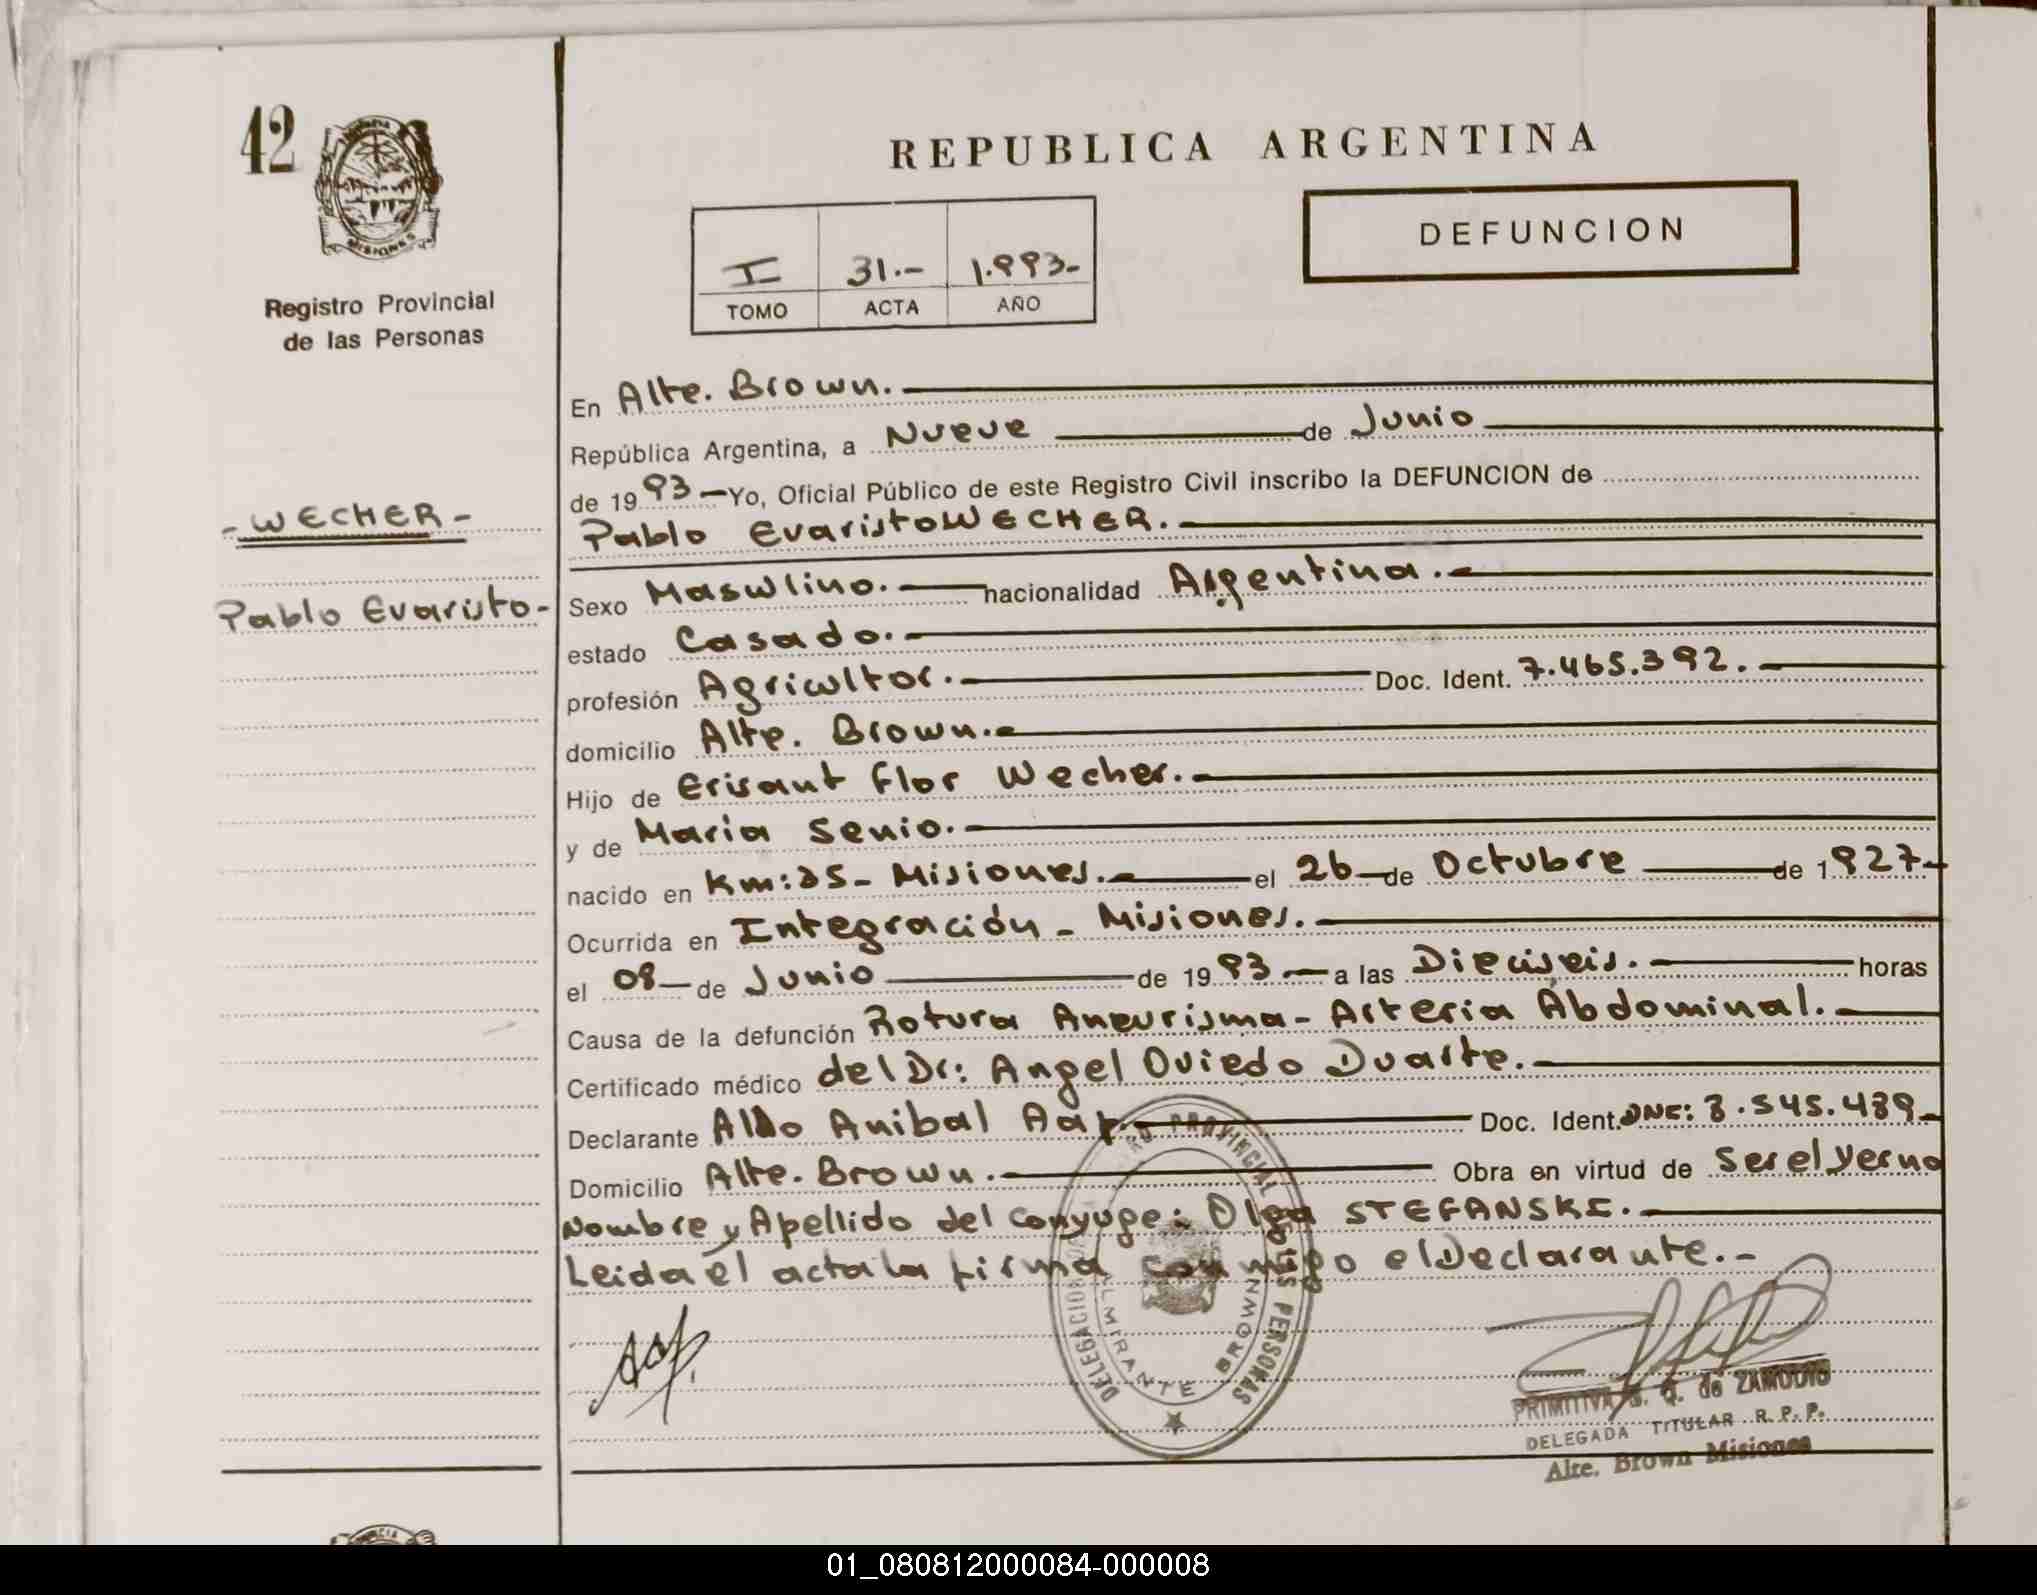 42
MISIONES
Registro Provincial
de las Personas
- WECHER -
Pablo Evaristo -
REPUBLICA ARGENTINA
DEFUNCION
I 31.- 1.993-
TOMO ACTA AÑO
En Alte. Brown.
República Argentina, a Nueve de Junio
de 1993 Yo, Oficial Público de este Registro Civil inscribo la DEFUNCION de
Pablo Evaristo WECHER.
Sexo Masculino. nacionalidad Argentina.
estado Casado.
profesión Agricultor. Doc. Ident. 7.465.392.
domicilio Alte. Brown.
Hijo de Erisant Flor Wecher.
y de Maria Senio.
nacido en Km: 35- Misiones. el 26 de Octubre de 1927-
Ocurrida en Integración - Misiones.
el 08 de Junio de 1993 a las Dieciseis. horas
Causa de la defunción Rotura Aneurisma - Arteria Abdominal.
Certificado médico del Dr: Angel Oviedo Duarte.
Declarante Aldo Anibal Doc. Ident. DNI: 8.545.489-
Domicilio Alte. Brown. Obra en virtud de Ser el Yerno
Nombre y Apellido del Conyuge: Olga STEFANSKI.
Leida el acta la firma conmigo el Declarante.-
REGISTRO PROVINCIAL DE LAS PERSONAS
DELEGACION
ALMIRANTE BROWN
PRIMITIVA S. Q. de ZAMUDIO
DELEGADA TITULAR R. P. P.
Alte. Brown Misiones
01_080812000084-000008